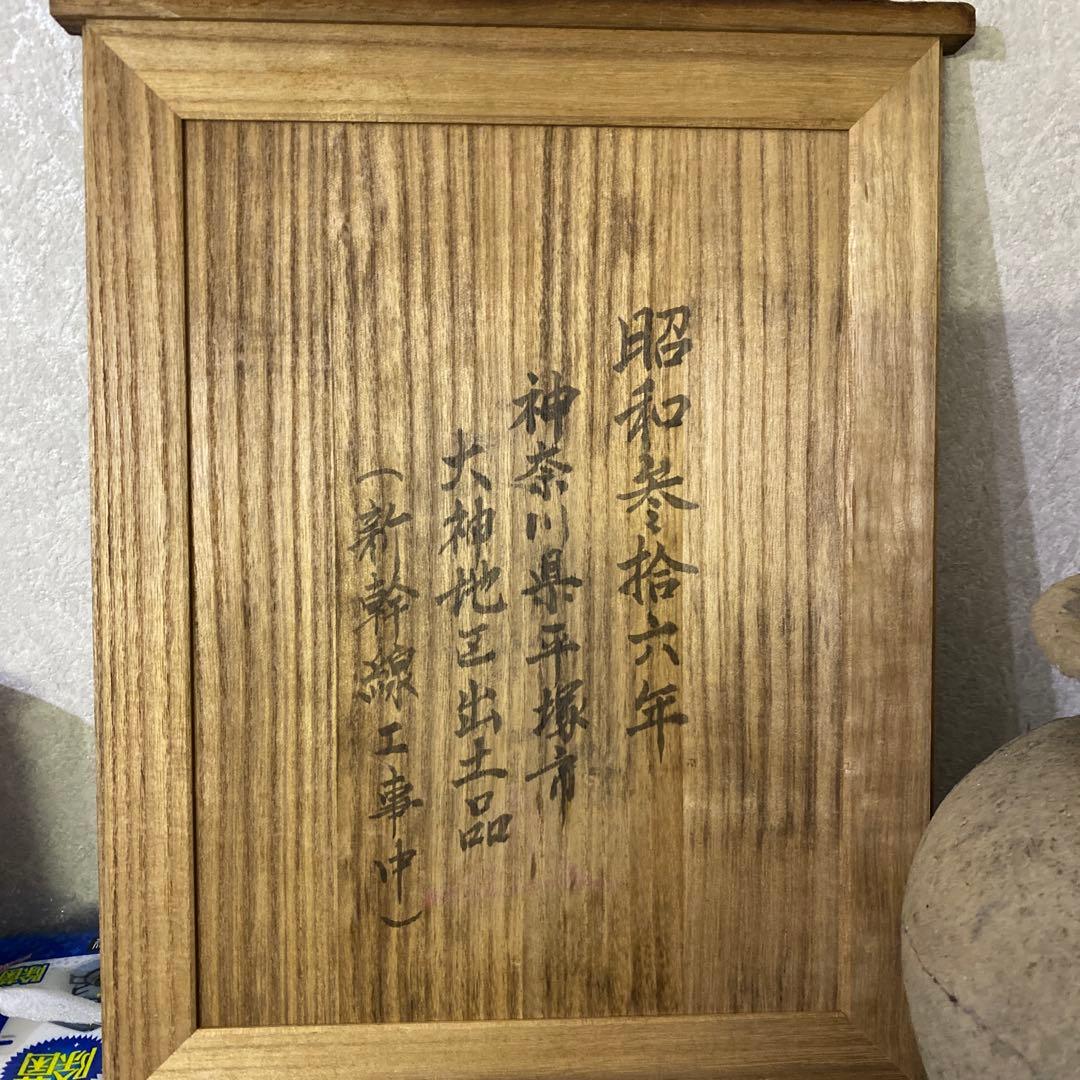 昭和参拾六年
神奈川県平塚市
大神地区出土品
(新幹線工事中)
除菌
除菌